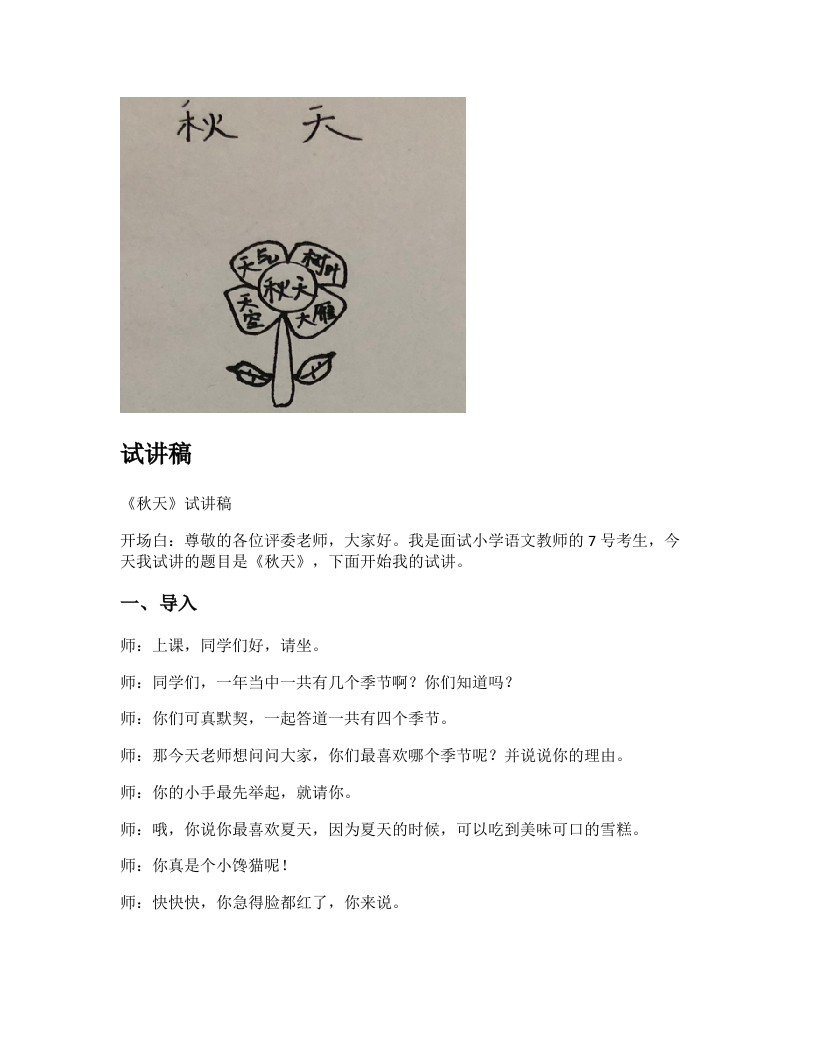 秋 天
天气 树叶
秋天
天空 大雁
试讲稿
《秋天》试讲稿
开场白：尊敬的各位评委老师，大家好。我是面试小学语文教师的 7 号考生，今
天我试讲的题目是《秋天》，下面开始我的试讲。
一、导入
师：上课，同学们好，请坐。
师：同学们，一年当中一共有几个季节啊？你们知道吗？
师：你们可真默契，一起答道一共有四个季节。
师：那今天老师想问问大家，你们最喜欢哪个季节呢？并说说你的理由。
师：你的小手最先举起，就请你。
师：哦，你说你最喜欢夏天，因为夏天的时候，可以吃到美味可口的雪糕。
师：你真是个小馋猫呢！
师：快快快，你急得脸都红了，你来说。